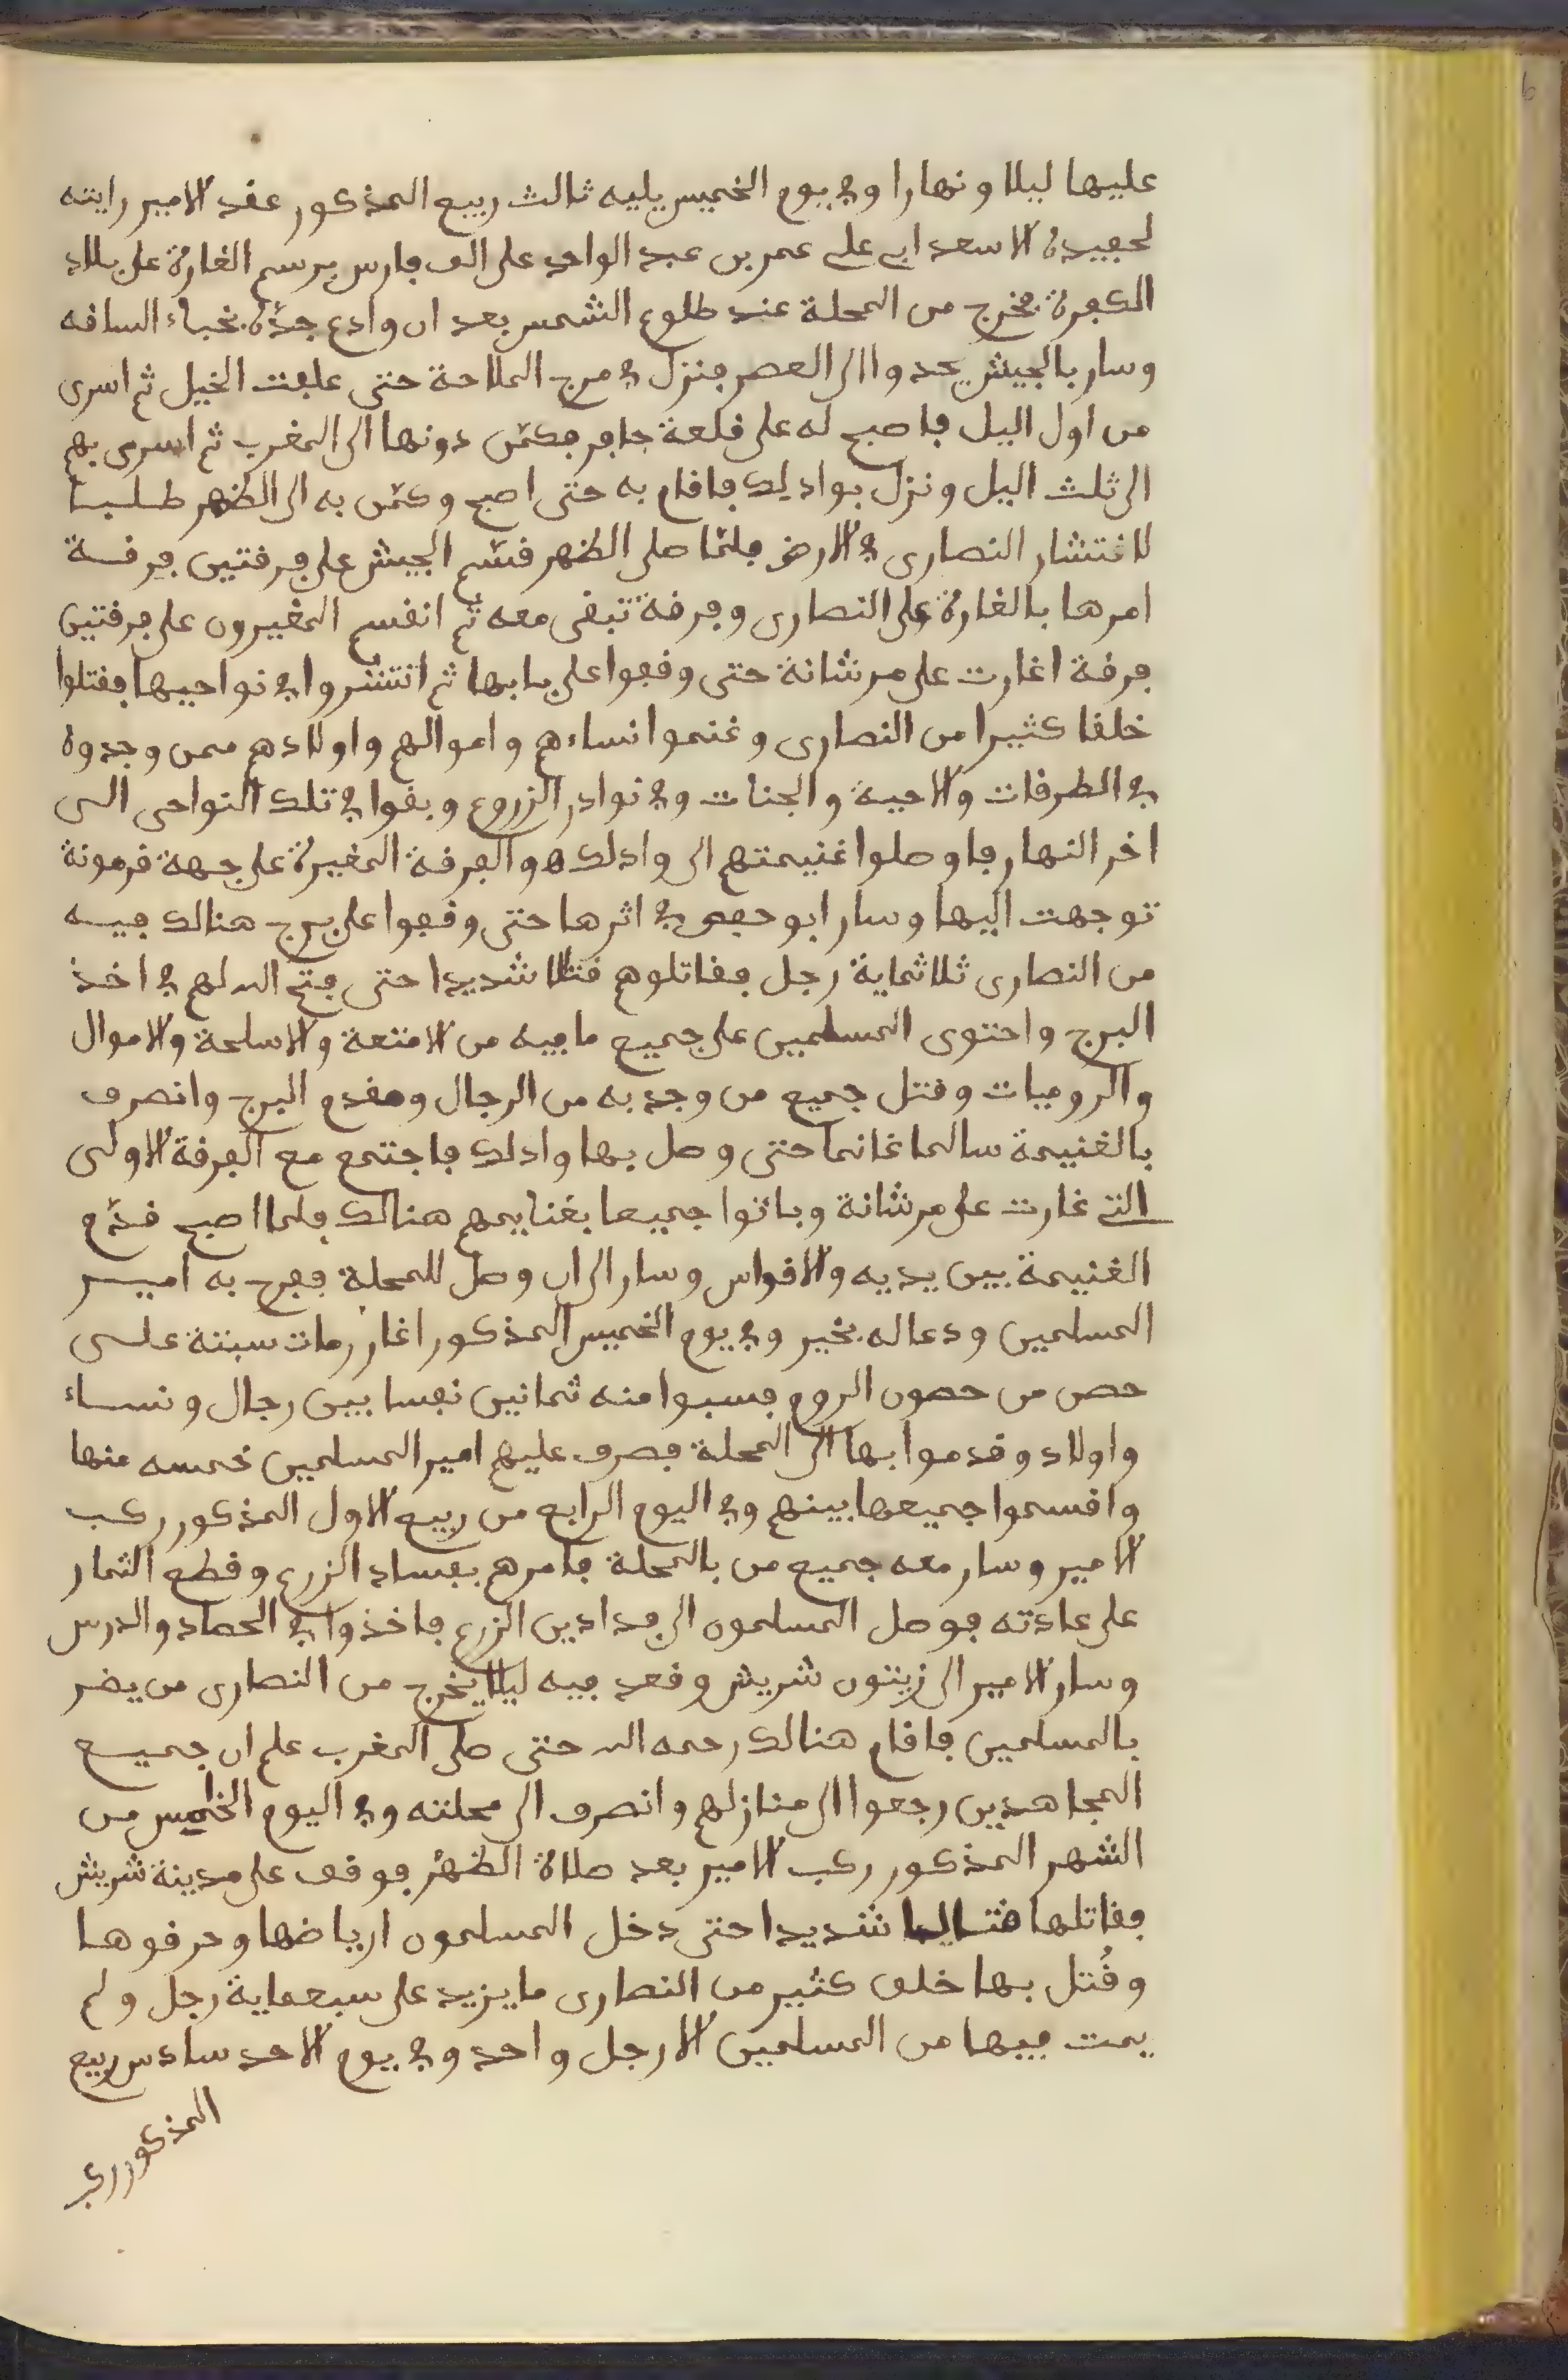 عليها ليلا ونهارا وفي يوم الخميس يليه ثالث ربيع المذكور عقد الامير رايته
لحفيده الاسعد ابي علي عمر بن عبد الواحد على الف فارس برسم الغارة على بلاد
الكفرة فخرج من المحلة عند طلوع الشمس بعد ان وادع جدّه بخباء الساقه
وسار بالجيش يحدوا الى العصر فنزل في مرج الملاحة حتى علفت الخيل ثم اسرى
من اول اليل فاصبح له على قلعة جابر فكمّن دونها الى المغرب ثم اسرى بهم
الى ثلث اليل ونزل بواد لك فاقام به حتى اصبح وكمّن به الى الظهر طلبا
لانتشار النصارى في الارض فلمّا صلى الظهر قسّم الجيش على فرقتين فرقة
امرها بالغارة على النصارى وفرقة تبقى معه ثم انقسم المغيرون على فرقتين
فرقة اغارت على مرشانة حتى وقفوا على بابها ثم انتشروا في نواحيها فقتلوا
خلقا كثيرا من النصارى وغنموا نساءهم واموالهم واولادهم ممن وجدوه
في الطرقات والاحبية والجنات وفي نوادر الزروع وبقوا في تلك النواحى الى
اخر النهار فاوصلوا غنيمتهم الى واد لك والفرقة المغيرة على جهة قرمونة
توجهت اليها وسار ابو حفص في اثرها حتى وقفوا على برج هنالك فيه
من النصارى ثلاثماية رجل فقاتلوهم قتالا شديدا حتى فتح الله لهم في اخذ
البرج واحتوى المسلمين على جميع ما فيه من الامتعة والاسلحة والاموال
والروميات وقتل جميع من وجد به من الرجال ومقدم البرج وانصرف
بالغنيمة سالما غانما حتى وصل بها واد لك فاجتمع مع الفرقة الاولى
التي غارت على مرشانة وباتوا جميعا بغنايمهم هنالك فلما اصبح قدّم
الغنيمة بين يديه والاقواس وسار الى ان وصل للمحلة ففرح به امير
المسلمين ودعا له بخير وفي يوم الخميس المذكور اغار رمات سبتة على
حصن من حصون الروم فسبوا منه ثمانين نفسا بين رجال ونساء
واولاد وقدموا بها الى المحلة فصرف عليهم امير المسلمين خمسه منها
واقسموا جميعها بينهم وفي اليوم الرابع من ربيع الاول المذكور ركب
الامير وسار معه جميع من بالمحلة فامرهم بفساد الزرع وقطع الثمار
على عادته فوصل المسلمون الى فدادين الزرع فاخذوا في الحصاد والدرس
وسار الامير الى زيتون شريش وقعد فيه ليلا يخرج من النصارى من يضر
بالمسلمين فاقام هنالك رحمه الله حتى صلى المغرب علم ان جميع
المجاهدين رجعوا الى منازلهم وانصرف الى محلته وفي اليوم الخامس من
الشهر المذكور ركب الامير بعد صلاة الظهر فوقف على مدينة شريش
فقاتلها قتالا شديدا حتى دخل المسلمون ارباضها وحرقوها
وقُتل بها خلق كثير من النصارى ما يزيد على سبعماية رجل ولم
يمت فيها من المسلمين الا رجل واحد وفي يوم الاحد سادس ربيع
المذكور ركب